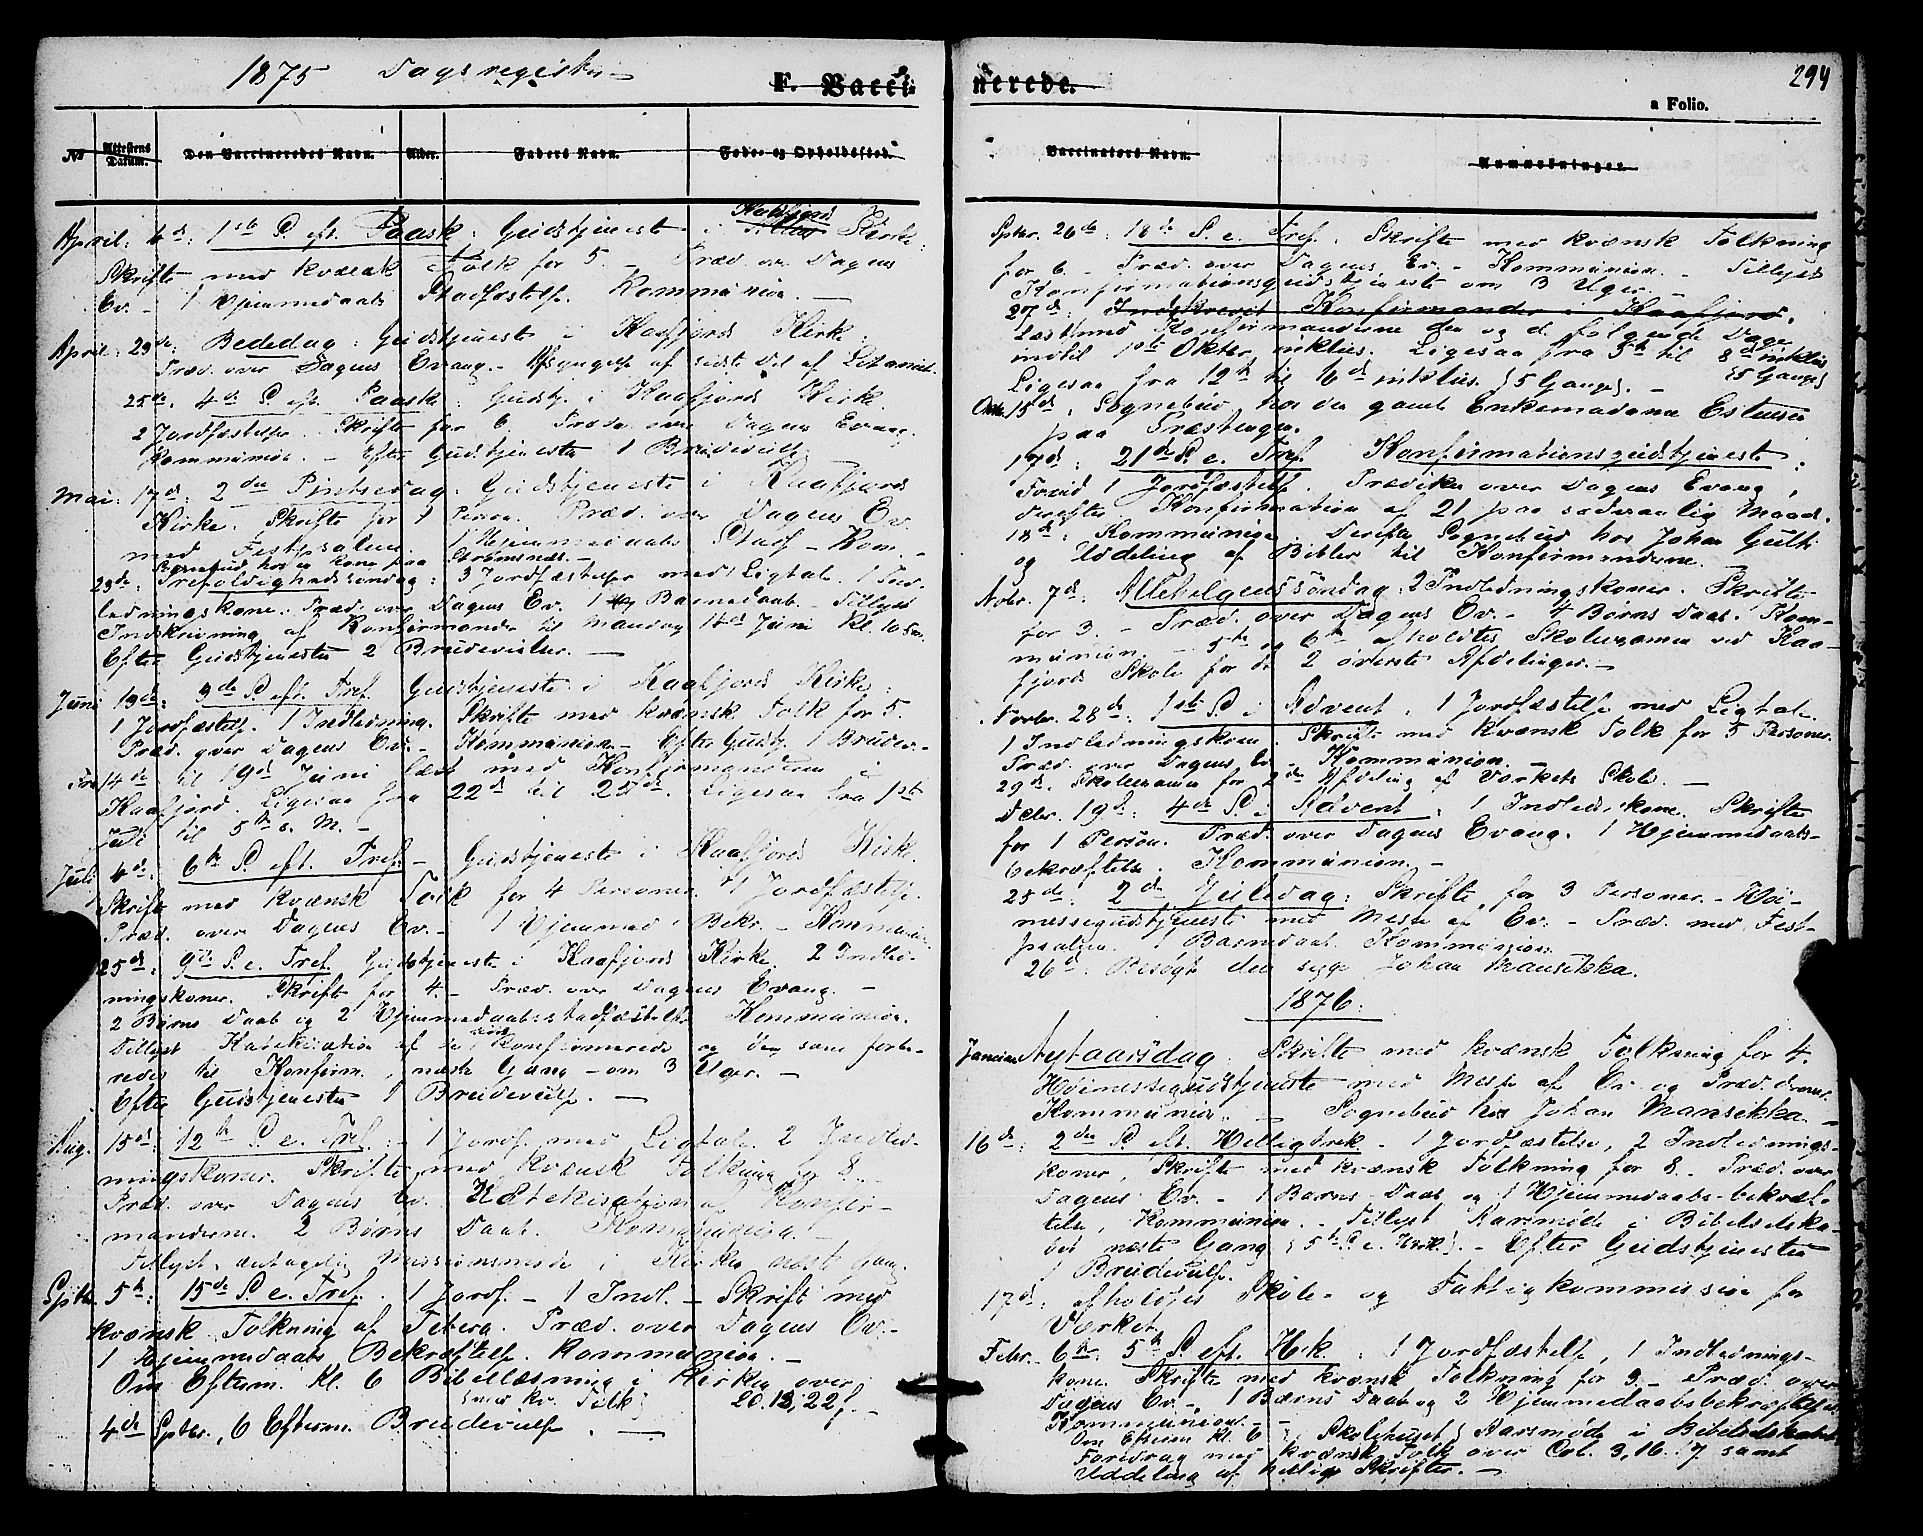 1875 Dagsregister
F. Vacci
nerede.
294
a Folio.
No
Attestens Datum.
Den Vaccineredes Navn.
Alder.
Faders Navn.
Føde- og Opholdssted.
Vaccinators Navn.
Anmærkninger.
April: 4de: 1ste S. eft. Paask: Gudstjeneste i Kaafjord Kirke:
Skrifte med kvænsk Tolk for 5 - Præd. over Dagens
Ev. - 1 Hjemmedaabs Stadfæstelse. Kommunion. -
April: 23de: Bededag: Gudstjeneste i Kaafjord Kirke:
Præd. over Dagens Evang. - Afsyngelse af sidste Del af Litaniet.
25de: 4de S. eft. Paask: Gudstj. i Kaafjord Kirk.
2 Jordfæstelse. Skrifte for 6. Præd. over Dagens Evang.
Kommunion. - Efter Gudstjenesten 1 Brudevielse.
Mai: 17de: 2den Pintsedag: Gudstjeneste i Kaafjord
Kirke. Skrifte for 1 Person. Præd. over Dagens Ev.
med Festpsalmer. 1 Hjemmedaabs Stadf. - Kom. -
Sognebud hos en Kone paa Strømsnæs. -
23de: Trefoldighedssøndag: 3 Jordfæstelse med Ligtale. 1 Ind-
ledningskone. Præd. over Dagens Ev. 1 Barnedaab. - Tillyst
Indskrivning af Konfirmander til Mandag 14de Juni Kl. 10
Efter Gudstjenesten 2 Brudevielser. -
Juni 13de: 3de S. eft. Tref. Gudstjeneste i Kaafjord Kirke:
1 Jordfæstelse. 1 Indledning. Skrifte med kvænsk Tolk for 5.
Præd. over Dagens Ev. - Kommunion - Efter Gudstj. 1 Brudev. -
Fra 14de til 19de Juni læst med Konfirmanderne i
Kaafjord. Ligesaa fra 22de til 25de. Ligesaa fra 1ste
Juli til 5te s. M. -
Juli 4de: 6te S. eft. Tref. - Gudstjeneste i Kaafjord Kirke.
Skrift med kvænsk Tolk for 4 Personer. 1 Jordfæstelse.
Præd. over Dagens Ev. - 1 Hjemmed. Bekr. - Kommunion.
25de: 9de S. e. Tref. Gudstjeneste i Kaafjord Kirke. 2 Indled-
ningskoner. Skrifte for 4. - Præd. over Dagens Evang. -
2 Børns Daab og 2 Hjemmedaabsstadfæstelse. Kommunion.
Tillyst Katekisation af de sidst konfirmerede og dem som forbe-
redes til Konfirm., næste Gang - om 3 Uger. -
Efter Gudstjenesten 1 Brudevielse. -
Aug. 15de: 12te S. e. Tref.: - 1 Jordf. med Ligtale. 2 Indled-
ningskoner. Skrifte med kvænsk Tolkning for 8. -
Præd. over Dagens Ev. Katekisation af Konfir-
manderne. 2 Børns Daab. Kommunion. -
Tillyst Missionsmøde i Kirken næste Gang.
Sptbr. 5te: 15de S. e. Tref. 1 Jordf. - 1 Indl. - Skrift med
kvænsk Tolkning af Præd. over Dagens Ev. -
1 Hjemmedaabs Bekræftelse. Kommunion. -
Om Efterm. Kl. 6 Bibellæsning i Kirken over
(med kv. Tolk)
4de Sptbr. 6 Efterm. Brudevielse. -
Sptbr. 26de: 18de S. e. Tref. Skrifte med kvænsk Tolkning
for 6 - Præd. over Dagens Ev. - Kommunion. - Tillyst
Konfirmationsgudstjeneste om 3 Uger. -
27de: Indskrevet Konfirmander i Kaafjord.
Læst med Konfirmanderne den og de følgende Dage
indtil 1ste Oktbr. inklus. Ligesaa fra 5te til 8de inklus.
Ligesaa fra 12te til 16de inklus. (5 Gange). - (5 Gange)
Oktbr. 15de: Sognebud hos den gamle Enkemadame Estensen
paa Præstengen.
17de: 21de S. e. Tref. Konfirmationsgudstjeneste:
Forud 1 Jordfæstelse. Prædiken over Dagens Evang.,
derefter Konfirmation af 21 paa sædvanlig Maade.
18de: Kommunion. Derefter Sognebud hos Johan
og Uddeling af Bibler til Konfirmanderne. -
Novbr. 7de: Allehelgenssøndag: 2 Indledningskoner. Skrifte
for 3. - Præd. over Dagens Ev. - 4 Børns Daab. Kom-
munion. - 5te og 6te afholdtes Skoleexamen ved Kaa-
fjord Skole for de 2 øverste Afdelinger. -
Novbr. 28de: 1ste S. i Advent: 1 Jordfæstelse med Ligtale.
1 Indledningskone. Skrifte med kvænsk Tolk for 5 Personer.
Præd. over Dagens Ev. Kommunion. -
29de: Skoleexamen for 2de Afdeling af Værkets Skole. -
Debr. 19de: 4de S. i Advent: 1 Indleds. kone. Skrifte
for 1 Person. Præd. over Dagens Evang. 1 Hjemmedaabs-
bekræftelse. Kommunion. -
25de: 2de Juledag: Skrifte for 3 Personer. - Høi-
messegudstjeneste med Messe af Ev. - Præd. med Fest-
psalmer. 1 Barnedaab. Kommunion.
26de: Besøgt den syge Johan Mansikka.
1876.
Januar Nytaarsdag: Skrifte med kvænsk Tolkning for 4.
Høimessegudstjeneste med Messe af Ev. og Præd. derover.
Kommunion. - Sognebud hos Johan Mansikka. -
16de: 2den S. eft. Helligtrek. - 1 Jordfæstelse, 2 Indlednings-
koner, Skrifte med kvænsk Tolkning for 8. - Præd. over
Dagens Ev. - 1 Barns Daab og 1 Hjemmedaabs-bekræf-
telse, Kommunion. - Tillyst Aarsmøde i Bibelselska-
bet næste Gang (5te S. e. Hrk.). - Efter Gudstjenesten
1 Brudevielse.
17de: afholdtes Skole- og Fattigkommission for
Værket.
Febr. 6te: 5te S. eft. H.k.: 1 Jordfæstelse, 1 Indlednings-
kone. Skrifte med kvænsk Tolkning for 3. - Præd. over
Dagens Ev. - 1 Barns Daab og 2 Hjemmedaabsbekræftelser.
Kommunion. -
Om Efterm Kl. 6 (i Skolehuset) Aarsmøde i Bibelselskabet
Foredrag med kvænsk Tolk over Col. 3, 16. 17 samt
Uddeling af hellige Skrifter. -